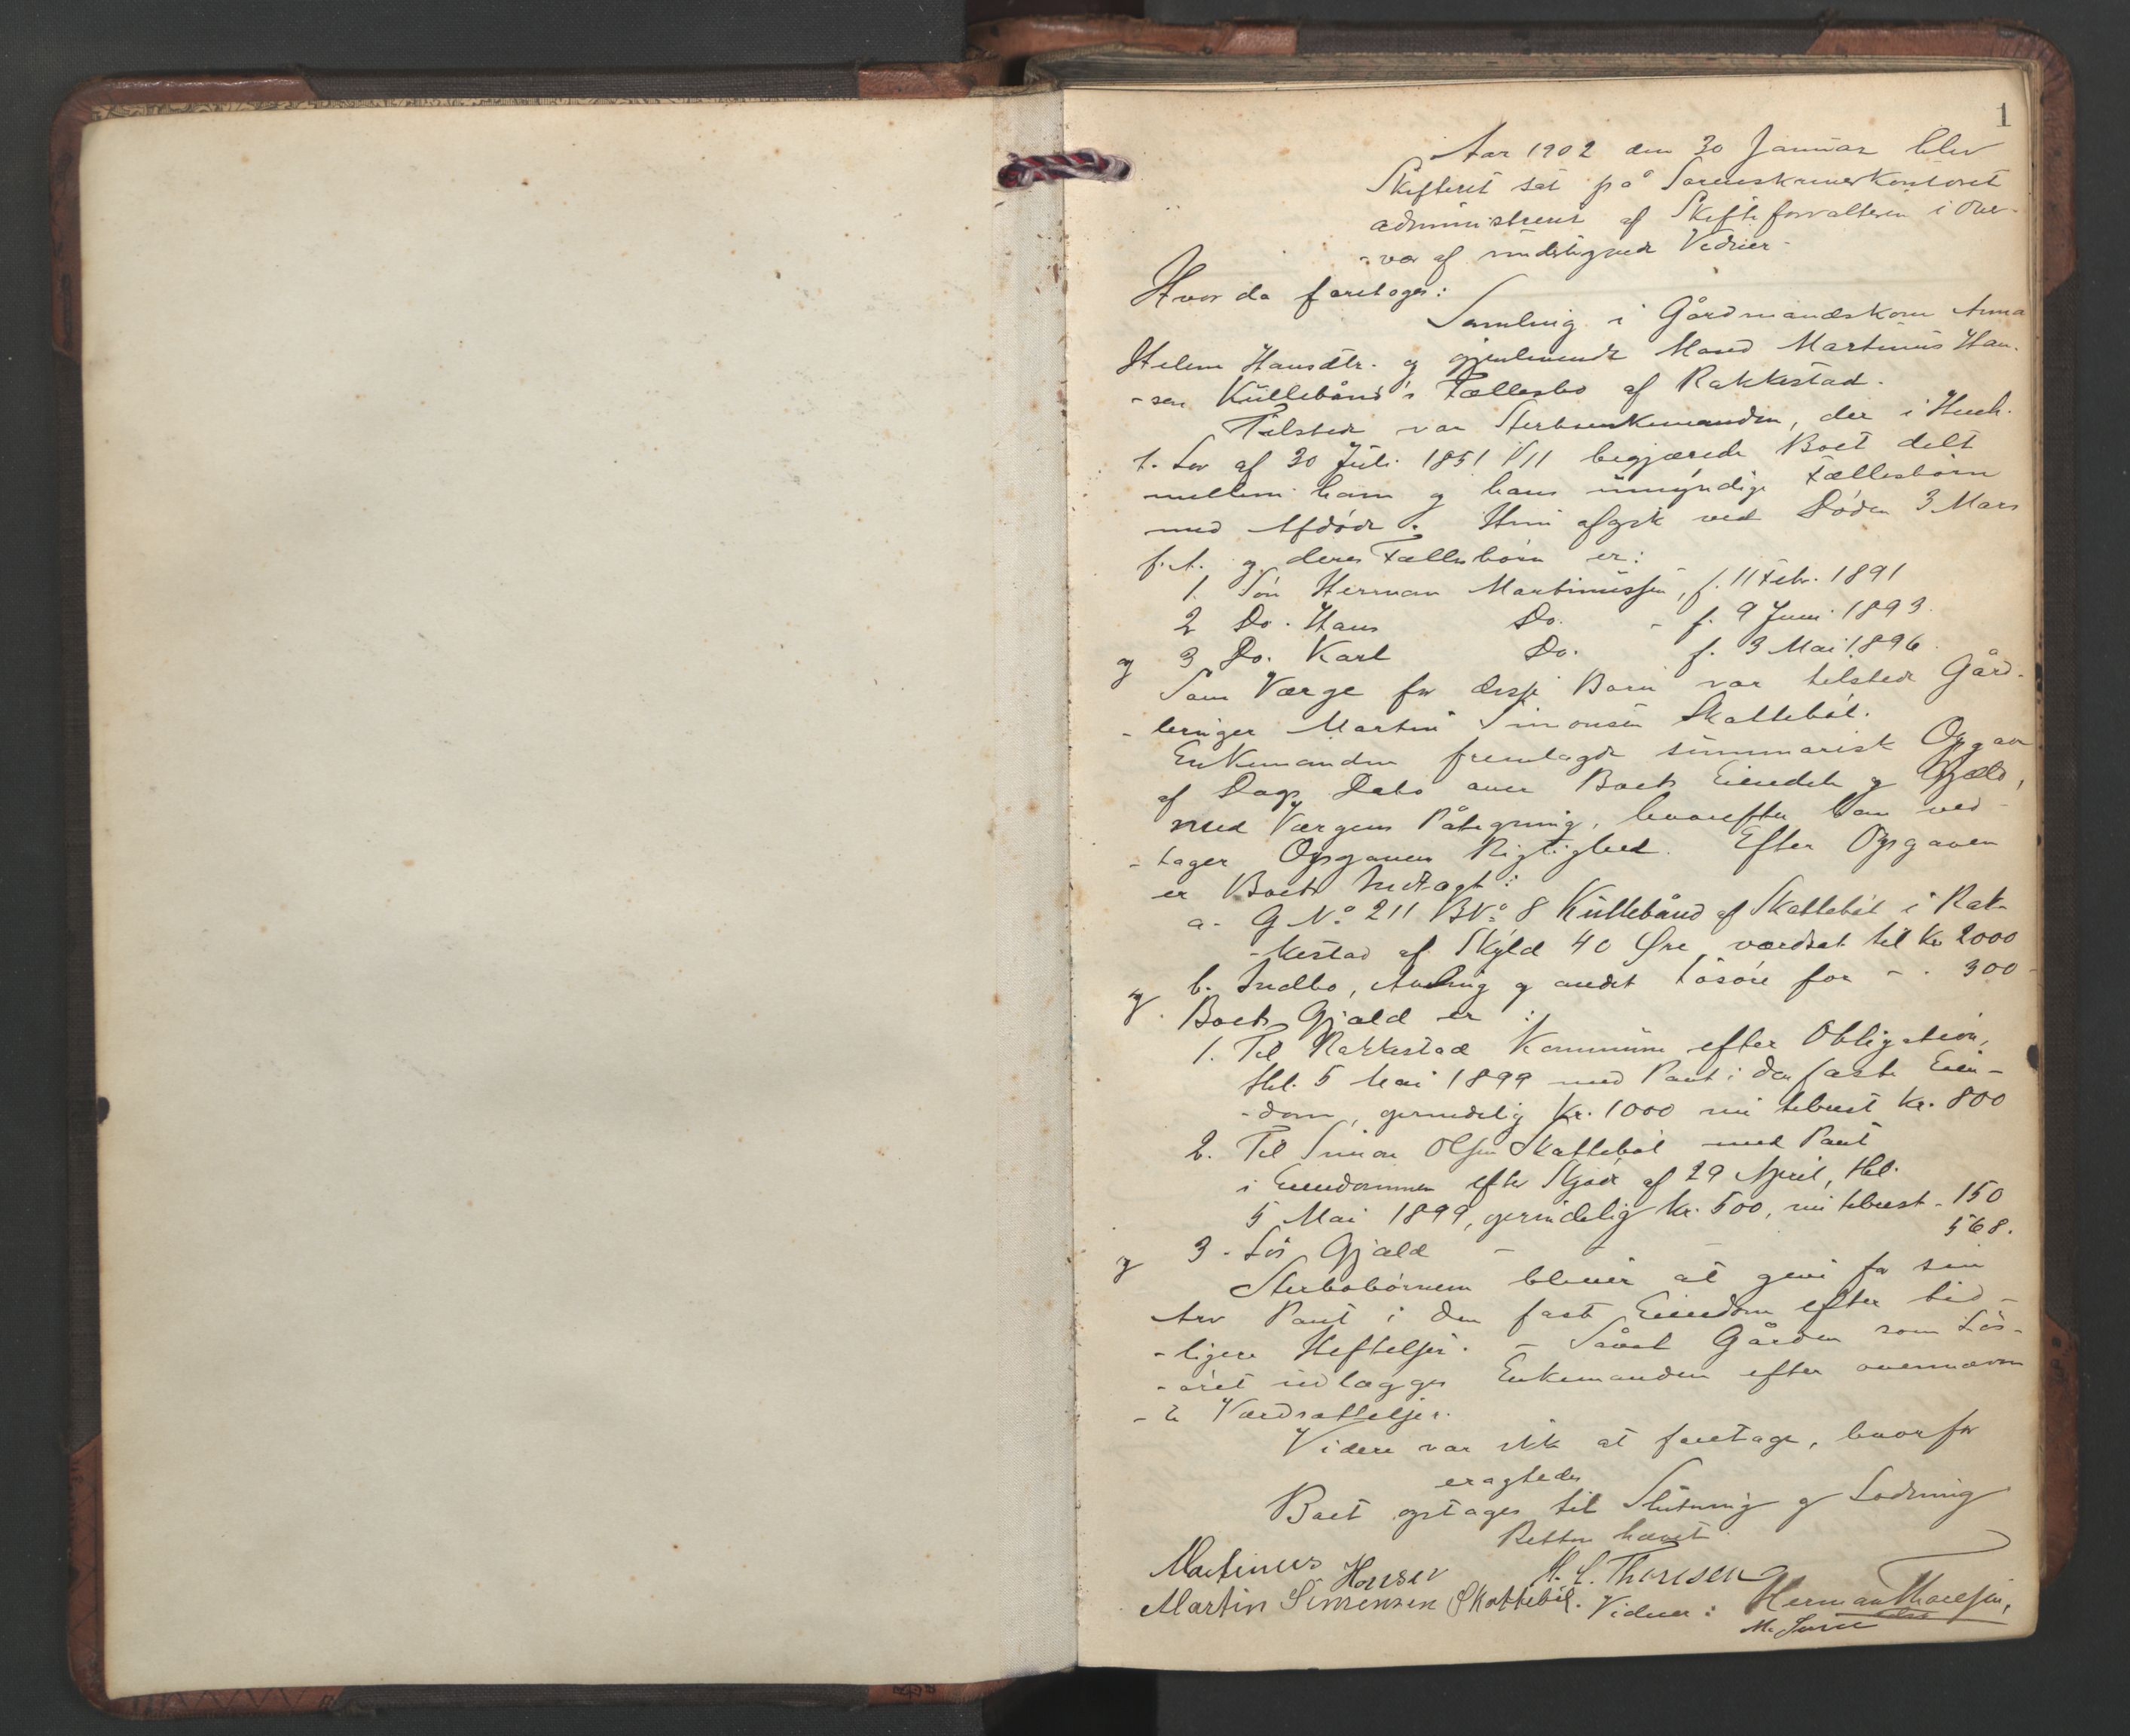 1
Aar 1902 den 30 Januar blev
Skifteret sat på Sorenskriverkontoret
administreret af Skifteforvalteren i Over-
-vær af undertegnede Vidner.
Hvor da foretoges:
Samling i Gårdmandskone Anna
Helene Hansdtr. og gjenlevende Mand Martinus Han-
-sen Kullebånd's Fællesbo af Rakkestad.
Tilstede var Sterbøenkemanden, der i Henh.
t. Lov af 30 Juli 1851 § 11 begjærede Boet delt
mellem ham og hans umyndige Fællesbørn
med Afdøde. Hun afgik ved Døden 3 Mars
f. A. og deres Fællesbørn er:
1. Søn Herman Martinussen, f. 11 Febr. 1891
2 Do. Hans Do. - f. 9 Juni 1893.
og 3 Do. Karl Do. f. 3 Mai 1896.
Som Værge for disse Børn var tilstede Gård-
-bruger Martin Simonsen Skattebøl.
Enkemanden fremlagde summarisk Opgave
af Dags Dato over Boets Eiendele og Gjæld,
med Værgens Påtegning, hvorefter han ved-
-tager Opgavens Rigtighed. Efter Opgaven
er Boets Indtægt:
a. G No 211 BNo 8 Kullebånd af Skattebøl i Rak-
-kestad af Skyld 40 Øre, værdsat til Kr 2000
og b. Indbo, Avling og andet Løsøre for - - 300-
Boets Gjæld er:
1. Til Rakkestad Kommune efter Obligation,
thl. 5 Mai 1899 med Pant i den faste Eien-
-dom, oprindelig Kr. 1000 nu tilrest Kr. 800
2. Til Simon Olsen Skattebøl med Pant
i Eiendommen efter Skjøde af 29 April, thl.
5 Mai 1899, oprindelig Kr. 500, nu tilrest - 150
og 3. Løs Gjæld - - 568.
Sterbobørnene bliver at give for sin
Arv Pant i den faste Eiendom efter tid-
-ligere Heftelser. - Såvel Gården som Løs-
-øret udlægges Enkemanden efter ovennævn
-te Værdsættelser.
Videre var ikke at foretage, hvorfor
eragtedes
Boet optages til Slutning og Lodning
Retten hævet
Martinus Hansen H. L. Thoresen
Martin Simensen Skattebøl. Vidner: Herman Thoresen,